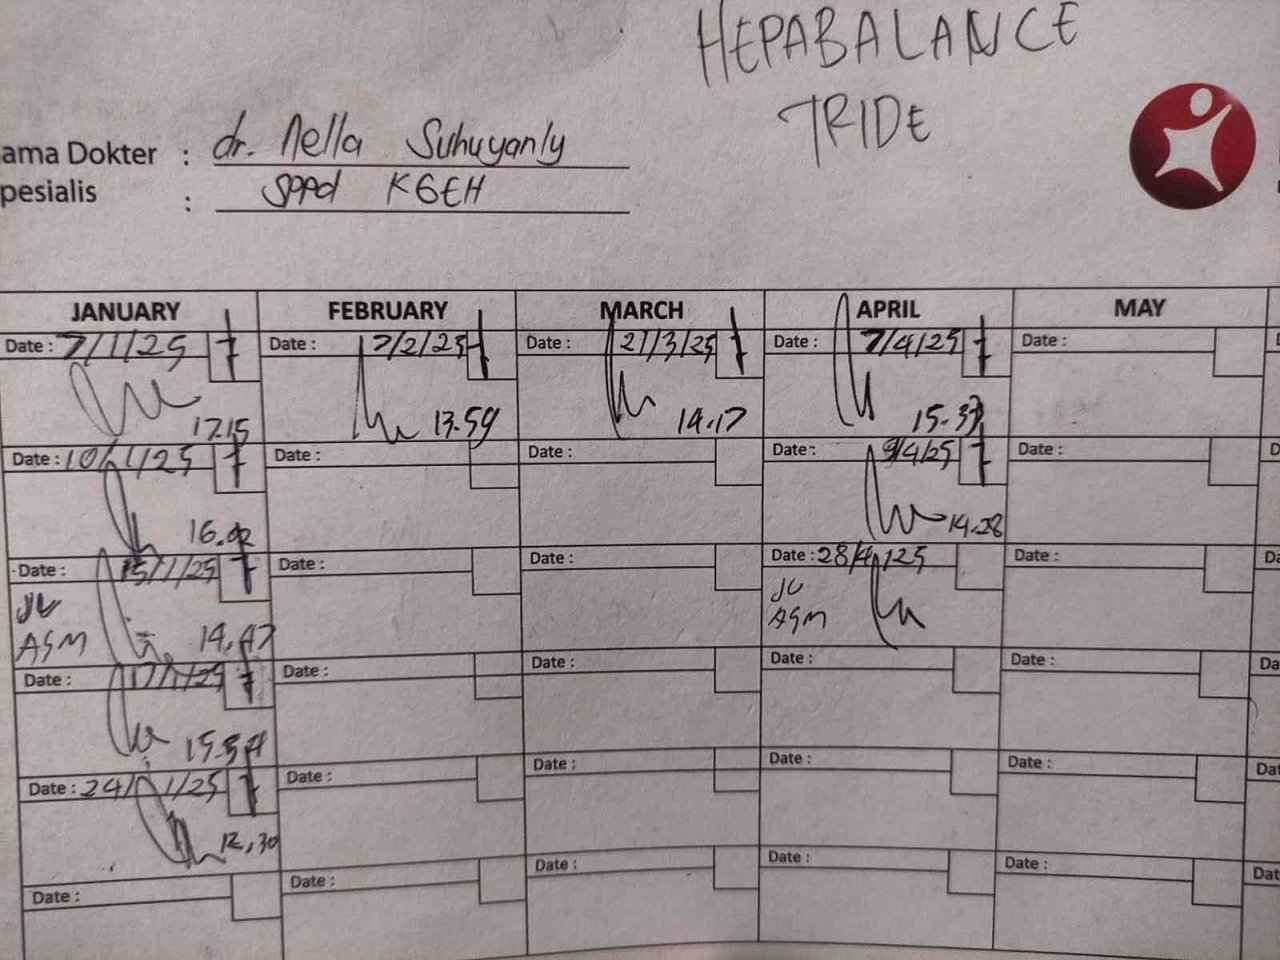 HEPABALANCE
TRIDE
ama Dokter : dr. Nella Suhuyanly
pesialis : Sppd KGEH
JANUARY FEBRUARY MARCH APRIL MAY
Date : 7/1/25 Date : 7/2/25 Date : 21/3/25 Date : 7/4/25 Date :
17.15 13.59 14.17 15.37
Date : 10/1/25 Date : Date : Date : 9/4/25 Date :
16.02 14.28
Date : 15/1/25 Date : Date : Date : 28/4/25 Date :
JV JV
ASM 14.47 ASM
Date : 17/1/25 Date : Date : Date : Date :
15.54
Date : 24/1/25 Date : Date : Date : Date :
12.30
Date : Date : Date : Date : Date :